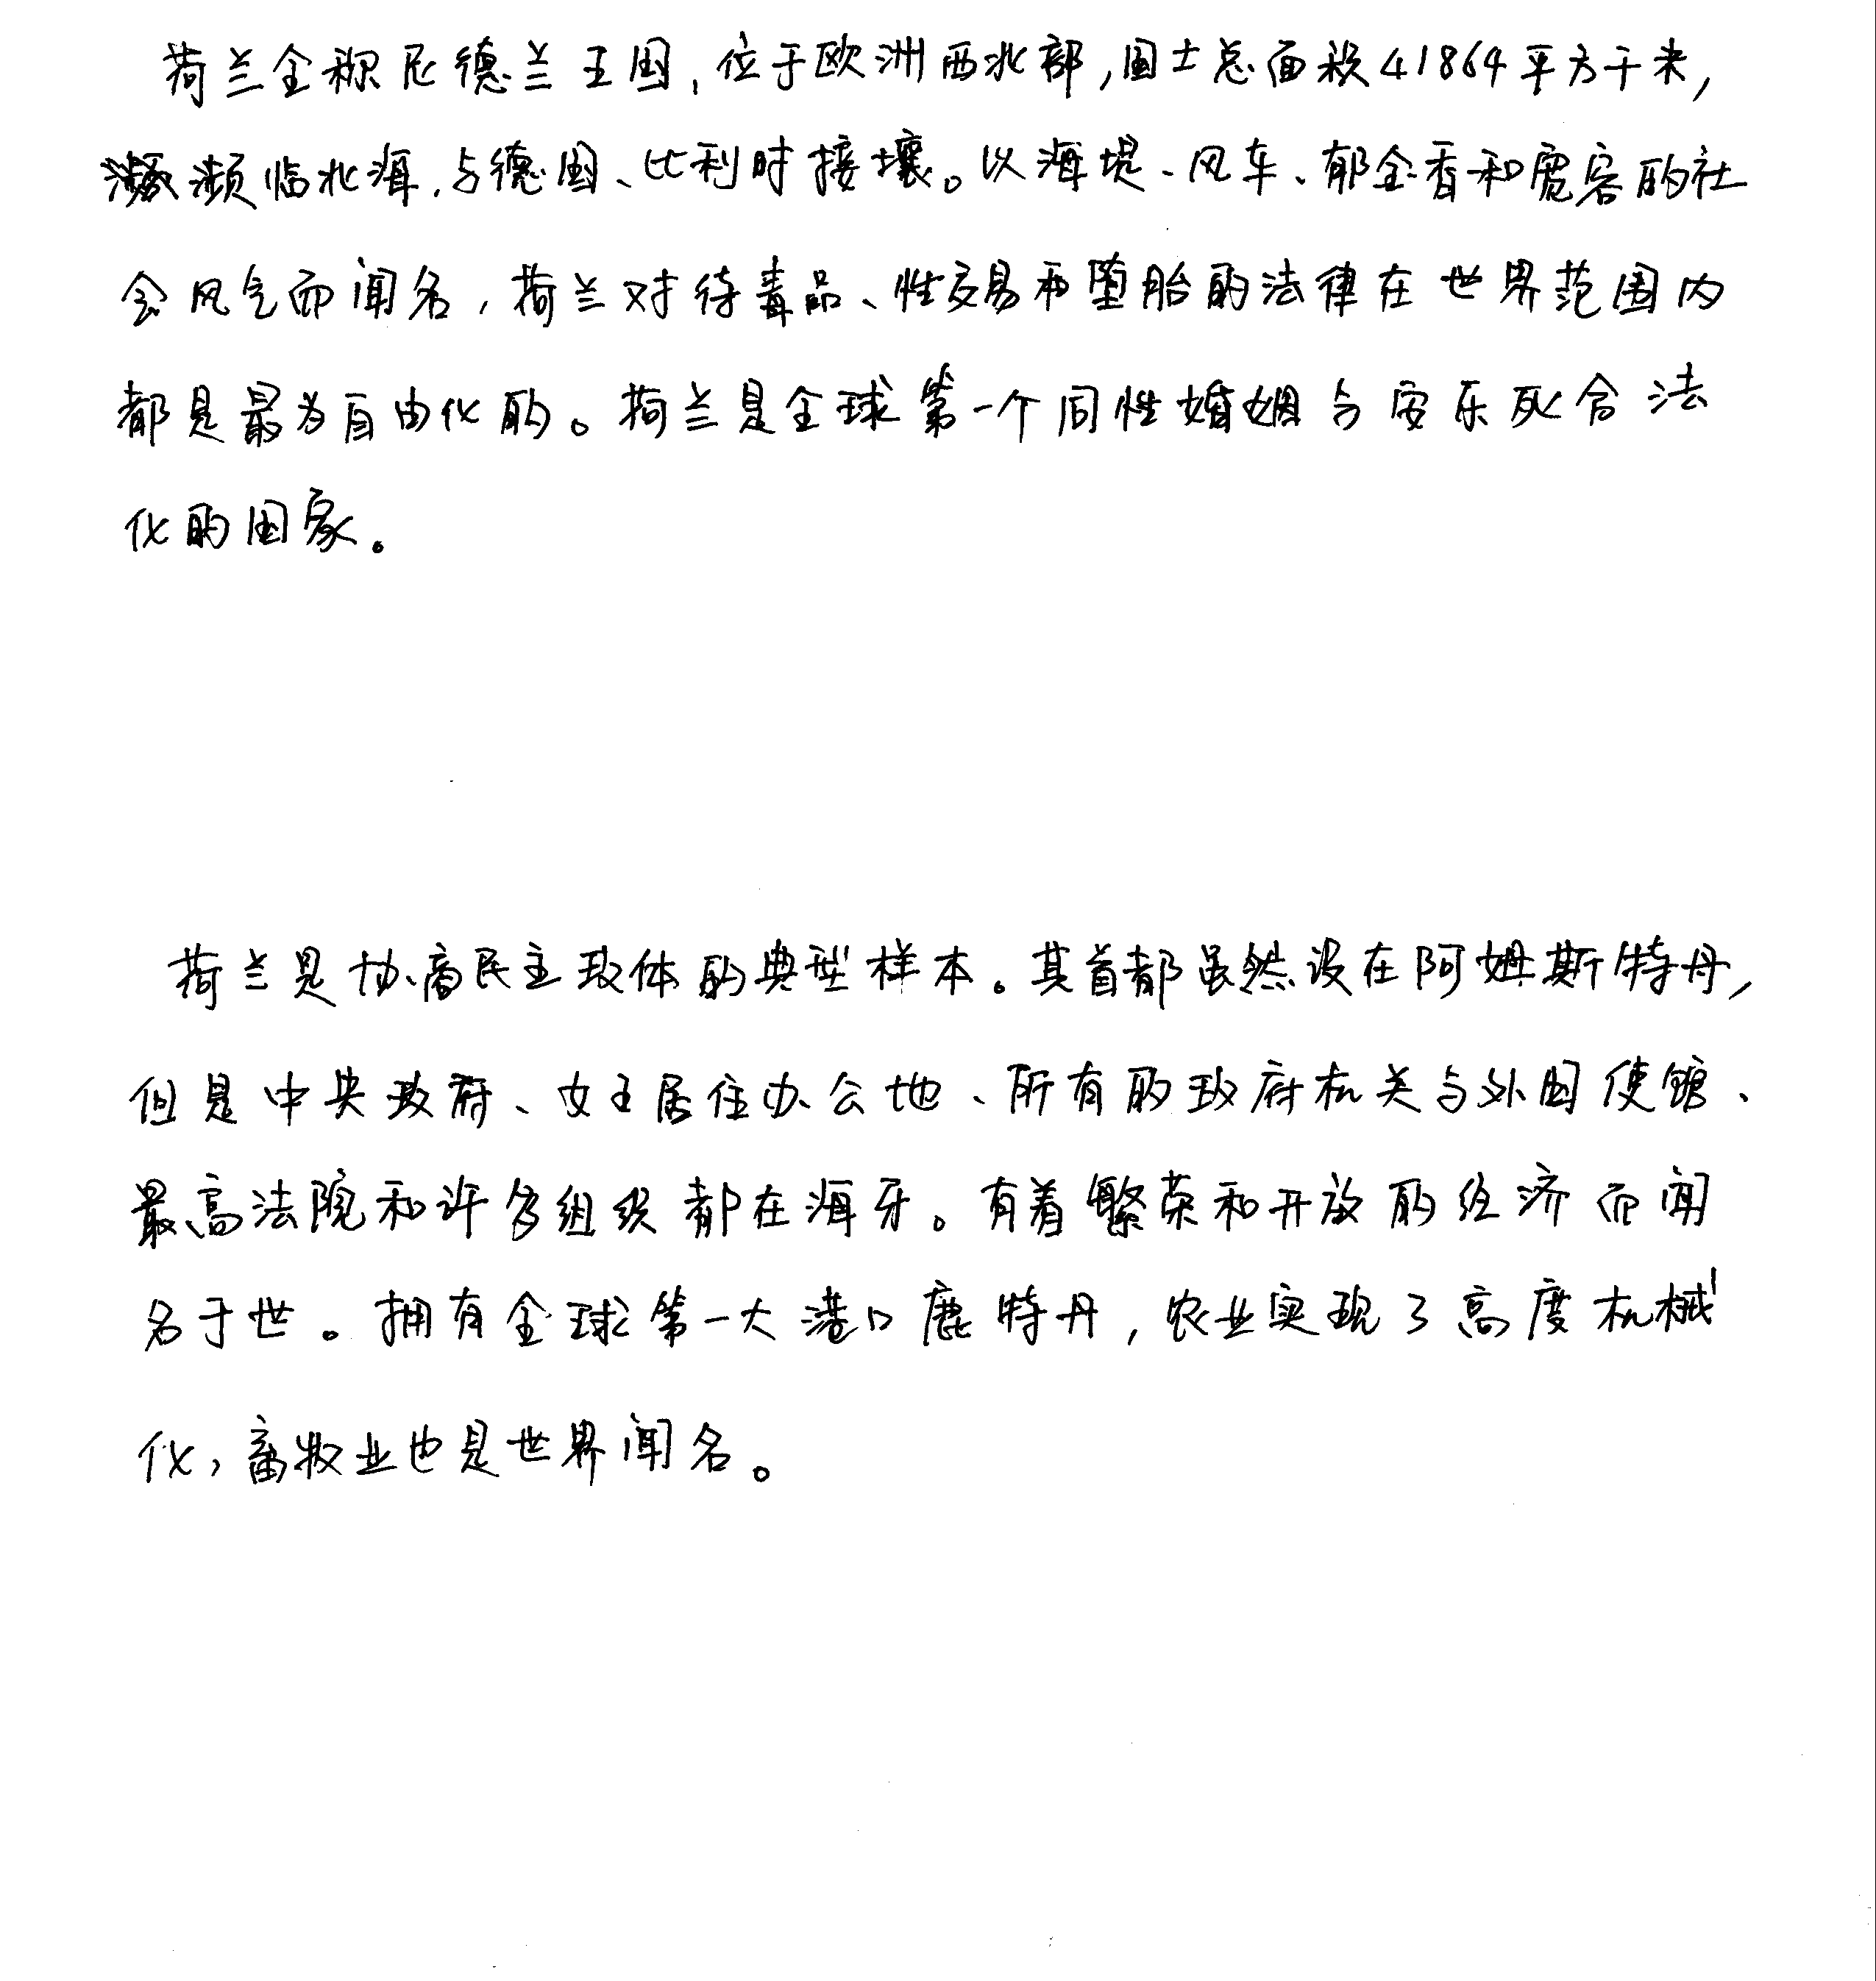 荷兰全称尼德兰王国,位于欧洲西北部,国土总面积41864平方千米,
濒临北海,与德国、比利时接壤。以海堤、风车、郁金香和宽容的社
会风气而闻名,荷兰对待毒品、性交易和堕胎的法律在世界范围内
都是最为自由化的。荷兰是全球第一个同性婚姻与安乐死合法
化的国家。
荷兰是协商民主政体的典型样本。其首都虽然设在阿姆斯特丹,
但是中央政府、女王居住办公地、所有的政府机关与外国使馆、
最高法院和许多组织都在海牙。有着繁荣和开放的经济而闻
名于世。拥有全球第一大港口鹿特丹,农业实现了高度机械
化,畜牧业也是世界闻名。